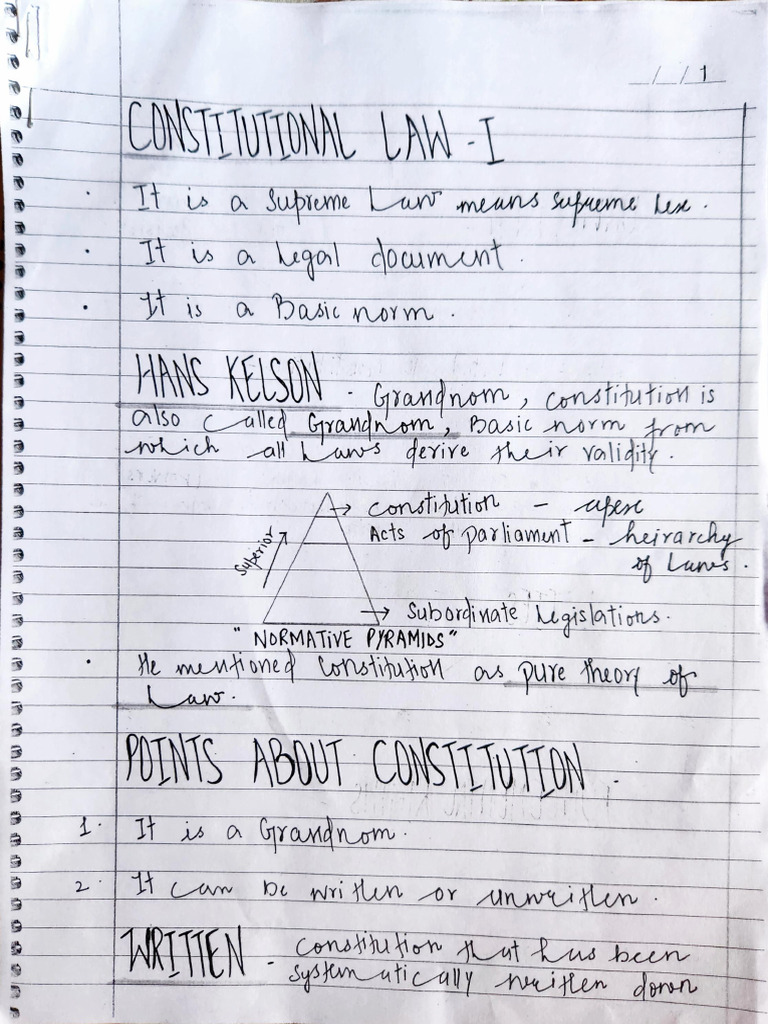 _/_/1
CONSTITUTIONAL LAW - I
· It is a Supreme Law means supreme lex.
· It is a Legal document.
· It is a Basic norm.
HANS KELSON - Grandnom, constitution is
also called Grandnom, Basic norm from
which all Laws derive their validity.
→ constitution - apex
Acts of parliament - heirarchy
of Laws.
Superior
→ Subordinate Legislations.
"NORMATIVE PYRAMIDS"
· He mentioned Constitution as pure theory of
Law.
POINTS ABOUT CONSTITUTION -
1. It is a Grandnom.
2. It can be written or unwritten.
WRITTEN - constitution that has been
systematically written down